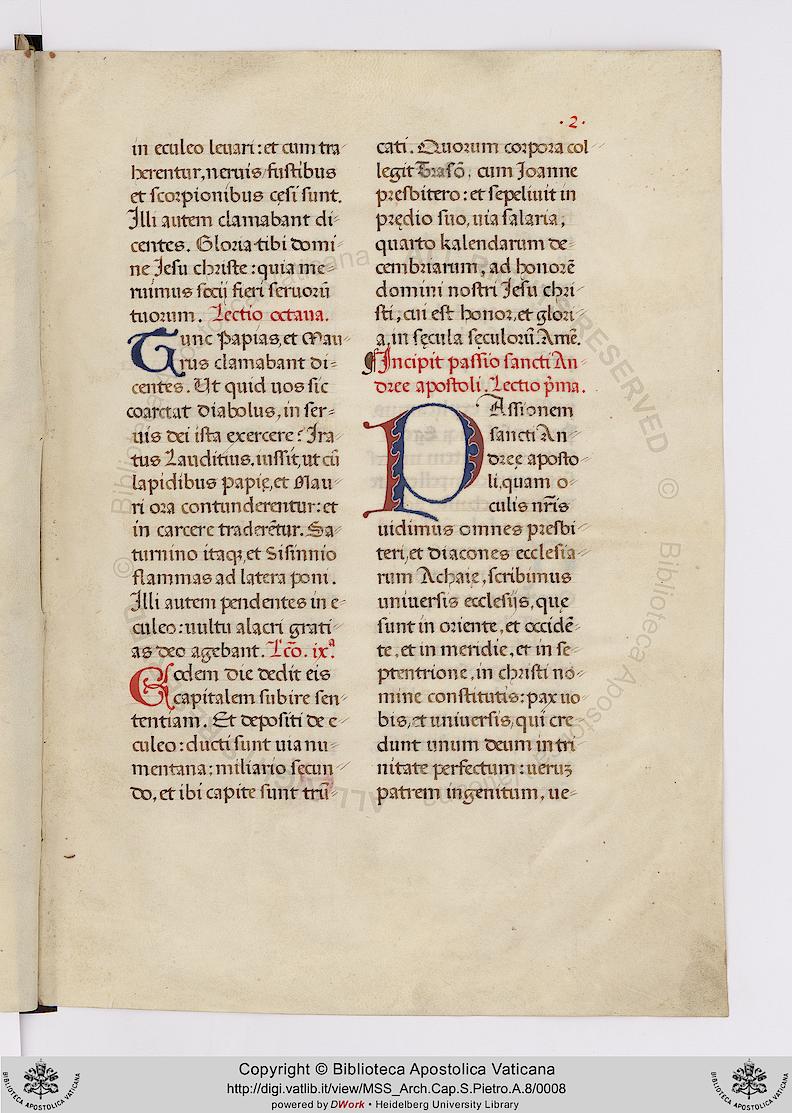 ·2·
in eculeo leuari: et cum tra⸗
herentur, neruis, fustibus
et scorpionibus cęsi sunt.
Illi autem clamabant di⸗
centes. Gloria tibi domi⸗
ne Iesu christe: quia me⸗
ruimus socij fieri seruorū
tuorum. Lectio octaua.
Tunc Papias, et Mau⸗
rus clamabant di⸗
centes. Ut quid uos sic
coarctat diabolus, in ser⸗
uis dei ista exercere? Ira⸗
tus Lauditius, iussit, ut cū
lapidibus papię, et Mau⸗
ri ora contunderentur: et
in carcere traderētur. Sa⸗
turnino itaqꝫ et Sisinnio
flammas ad latera poni.
Illi autem pendentes in e⸗
culeo: uultu alacri grati⸗
as deo agebant. Lc̄o. ixª.
Eodem die dedit eis
capitalem subire sen⸗
tentiam. Et depositi de e⸗
culeo: ducti sunt uia nu⸗
mentana: miliario secun⸗
do, et ibi capite sunt trū⸗
cati. Quorum corpora col⸗
legit Trasō, cum Ioanne
presbitero: et sepeliuit in
prędio suo, uia salaria,
quarto kalendarum de⸗
cembriarum, ad honorē
domini nostri Iesu chri⸗
sti, cui est honor, et glori⸗
a, in sęcula sęculorū. Amē.
¶Incipit passio sancti An⸗
dreę apostoli. Lectio p̄ma.
PAssionem
sancti An⸗
dreę aposto⸗
li, quam o⸗
culis nr̄is
uidimus omnes presbi⸗
teri, et diacones ecclesia⸗
rum Achaię, scribimus
uniuersis ecclesijs, quę
sunt in oriente, et occidē⸗
te, et in meridie, et in se⸗
ptentrione, in christi no⸗
mine constitutis: pax uo⸗
bis, et uniuersis, qui cre⸗
dunt unum deum in tri⸗
nitate perfectum: ueruꝫ
patrem ingenitum, ue⸗
Copyright © Biblioteca Apostolica Vaticana
http://digi.vatlib.it/view/MSS_Arch.Cap.S.Pietro.A.8/0008
powered by DWork • Heidelberg University Library
BIBLIOTECA APOSTOLICA VATICANA
BIBLIOTECA APOSTOLICA VATICANA